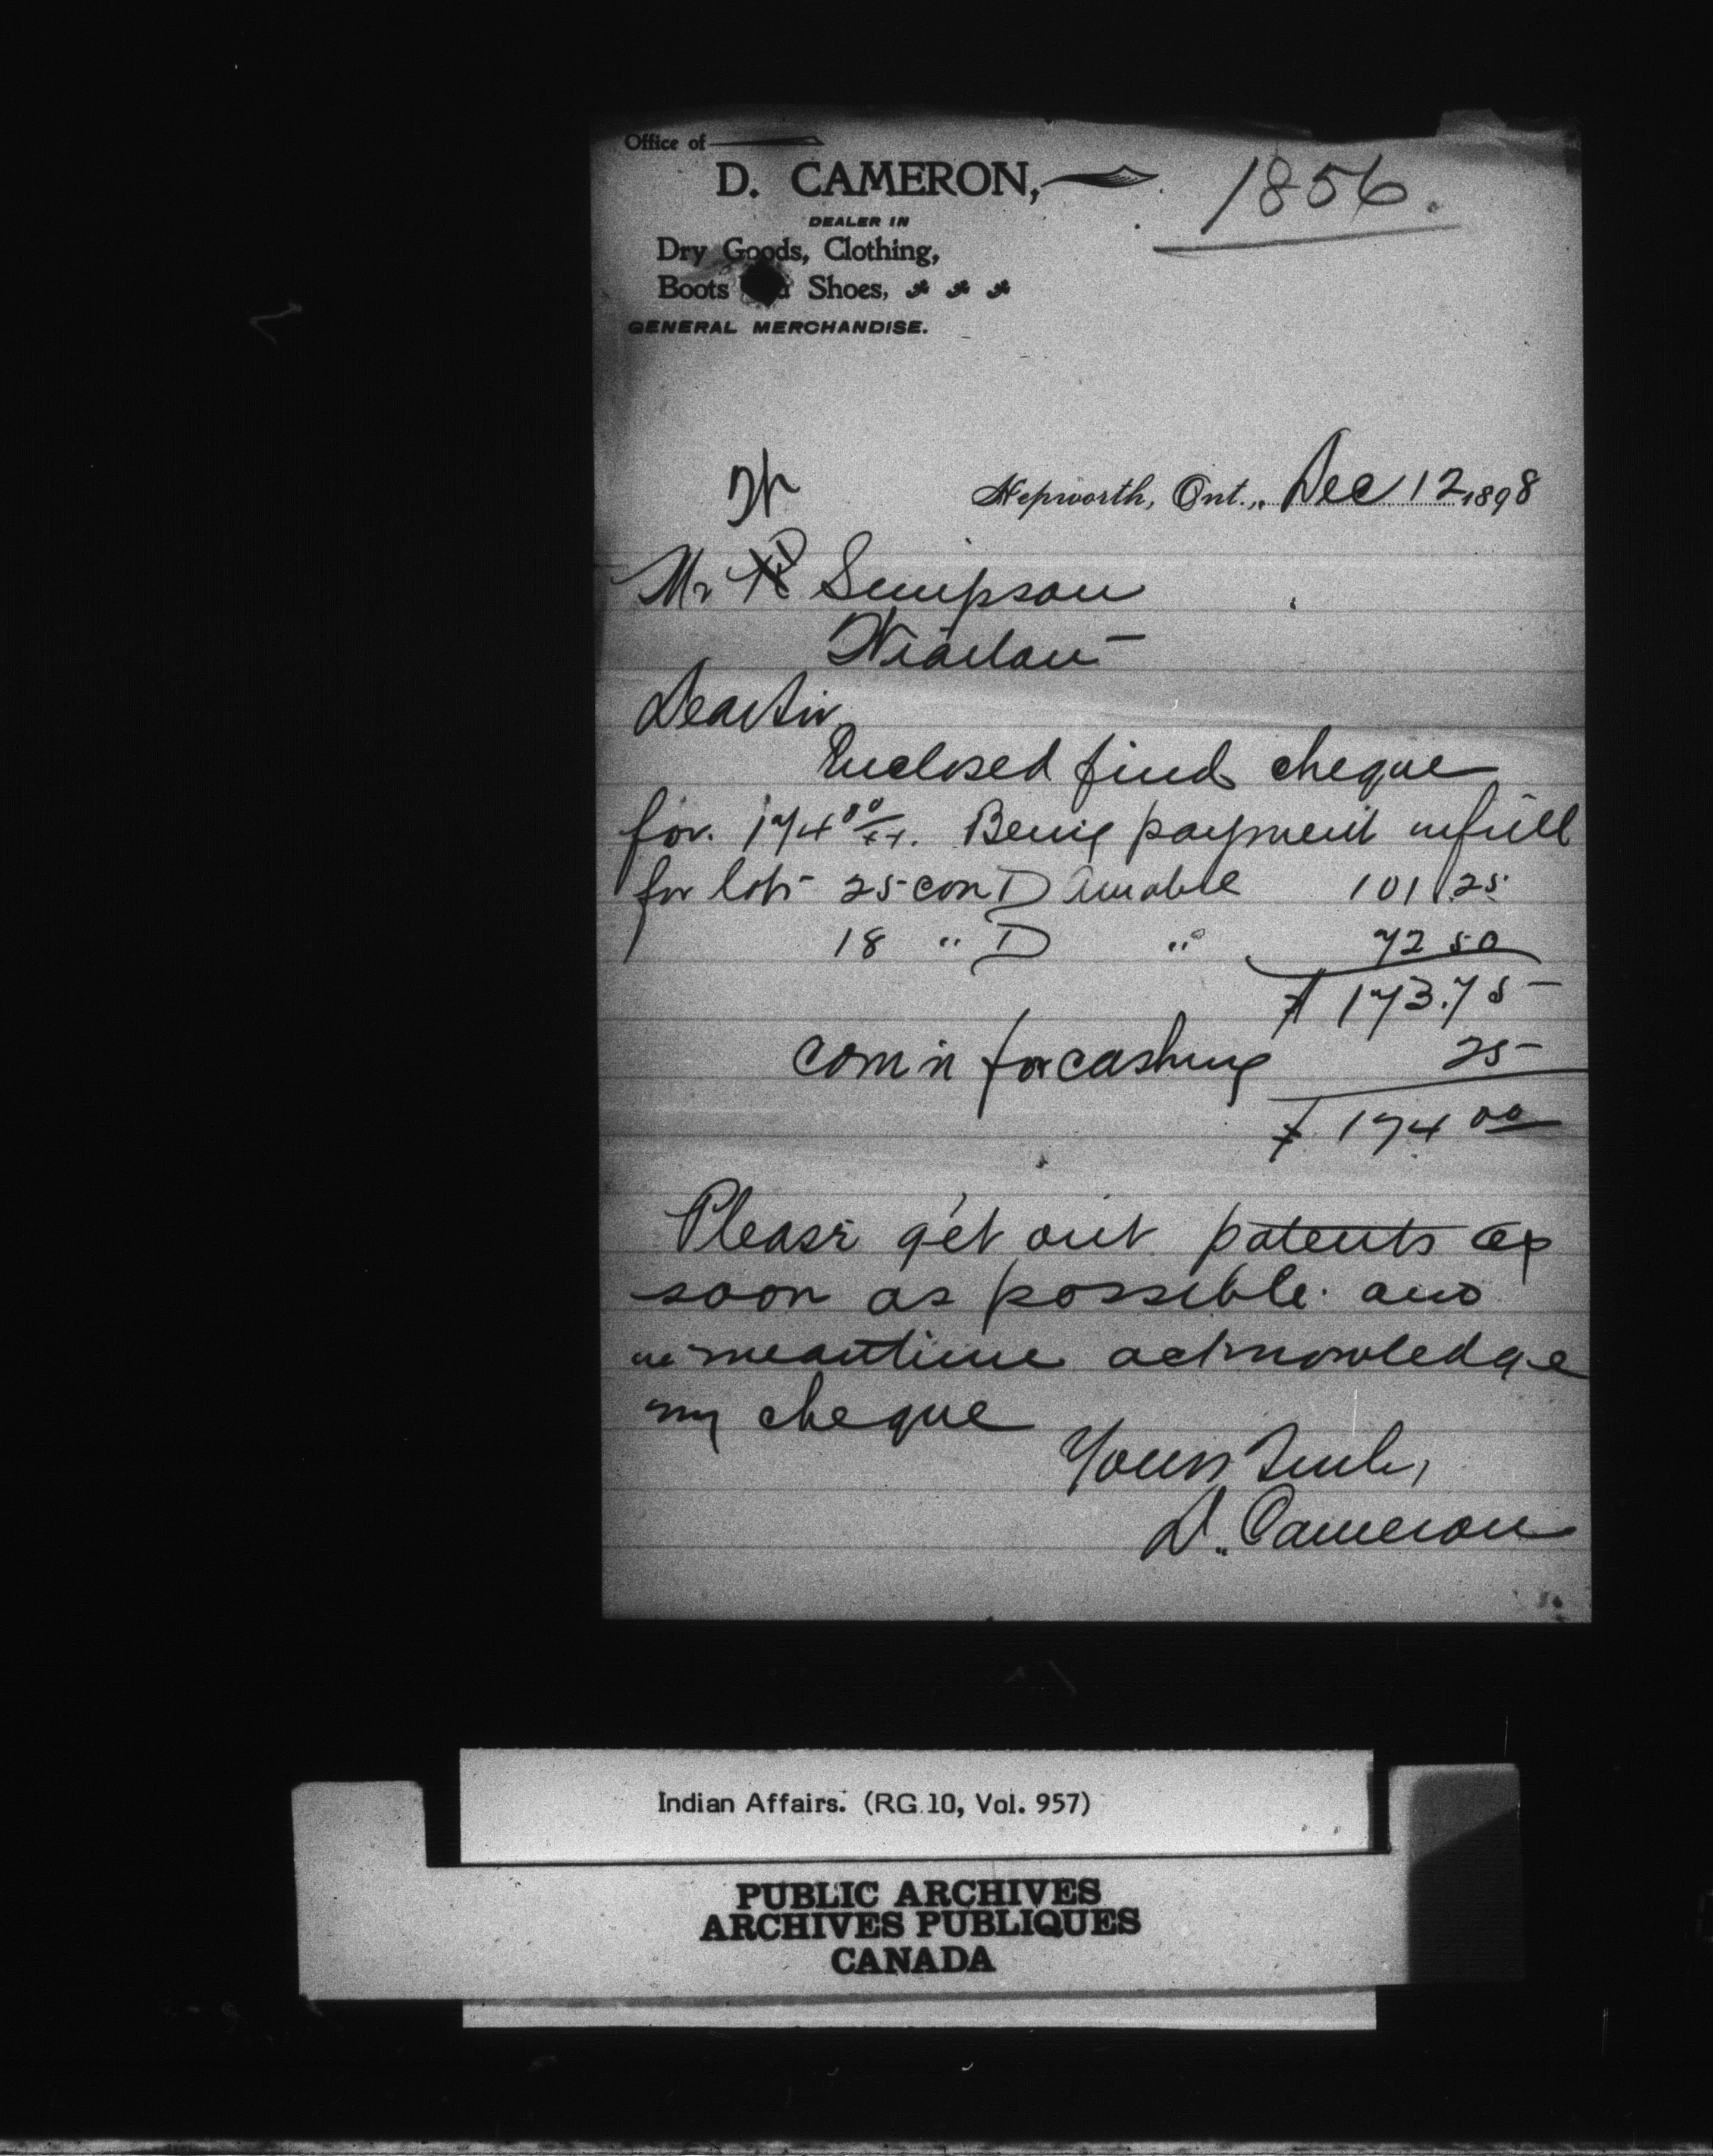 Office of
D. CAMERON,
1856.
DEALER IN
Dry Goods, Clothing,
Boots Shoes,
GENERAL MERCHANDISE.
Hepworth, Ont., Dec 12 1898
Mr Simpson
Wiarton
Dear Sir
Enclosed find cheque
for. 174 00/xx. Being payment in full
for lots 25 con D Amabel 101 25
18 " D " 72 50
$ 173.75
com'n for cashing 25
$ 174 00
Please get out patents as
soon as possible and
in meantime acknowledge
my cheque
Yours Truly,
D. Cameron
Indian Affairs. (RG 10, Vol. 957)
PUBLIC ARCHIVES
ARCHIVES PUBLIQUES
CANADA